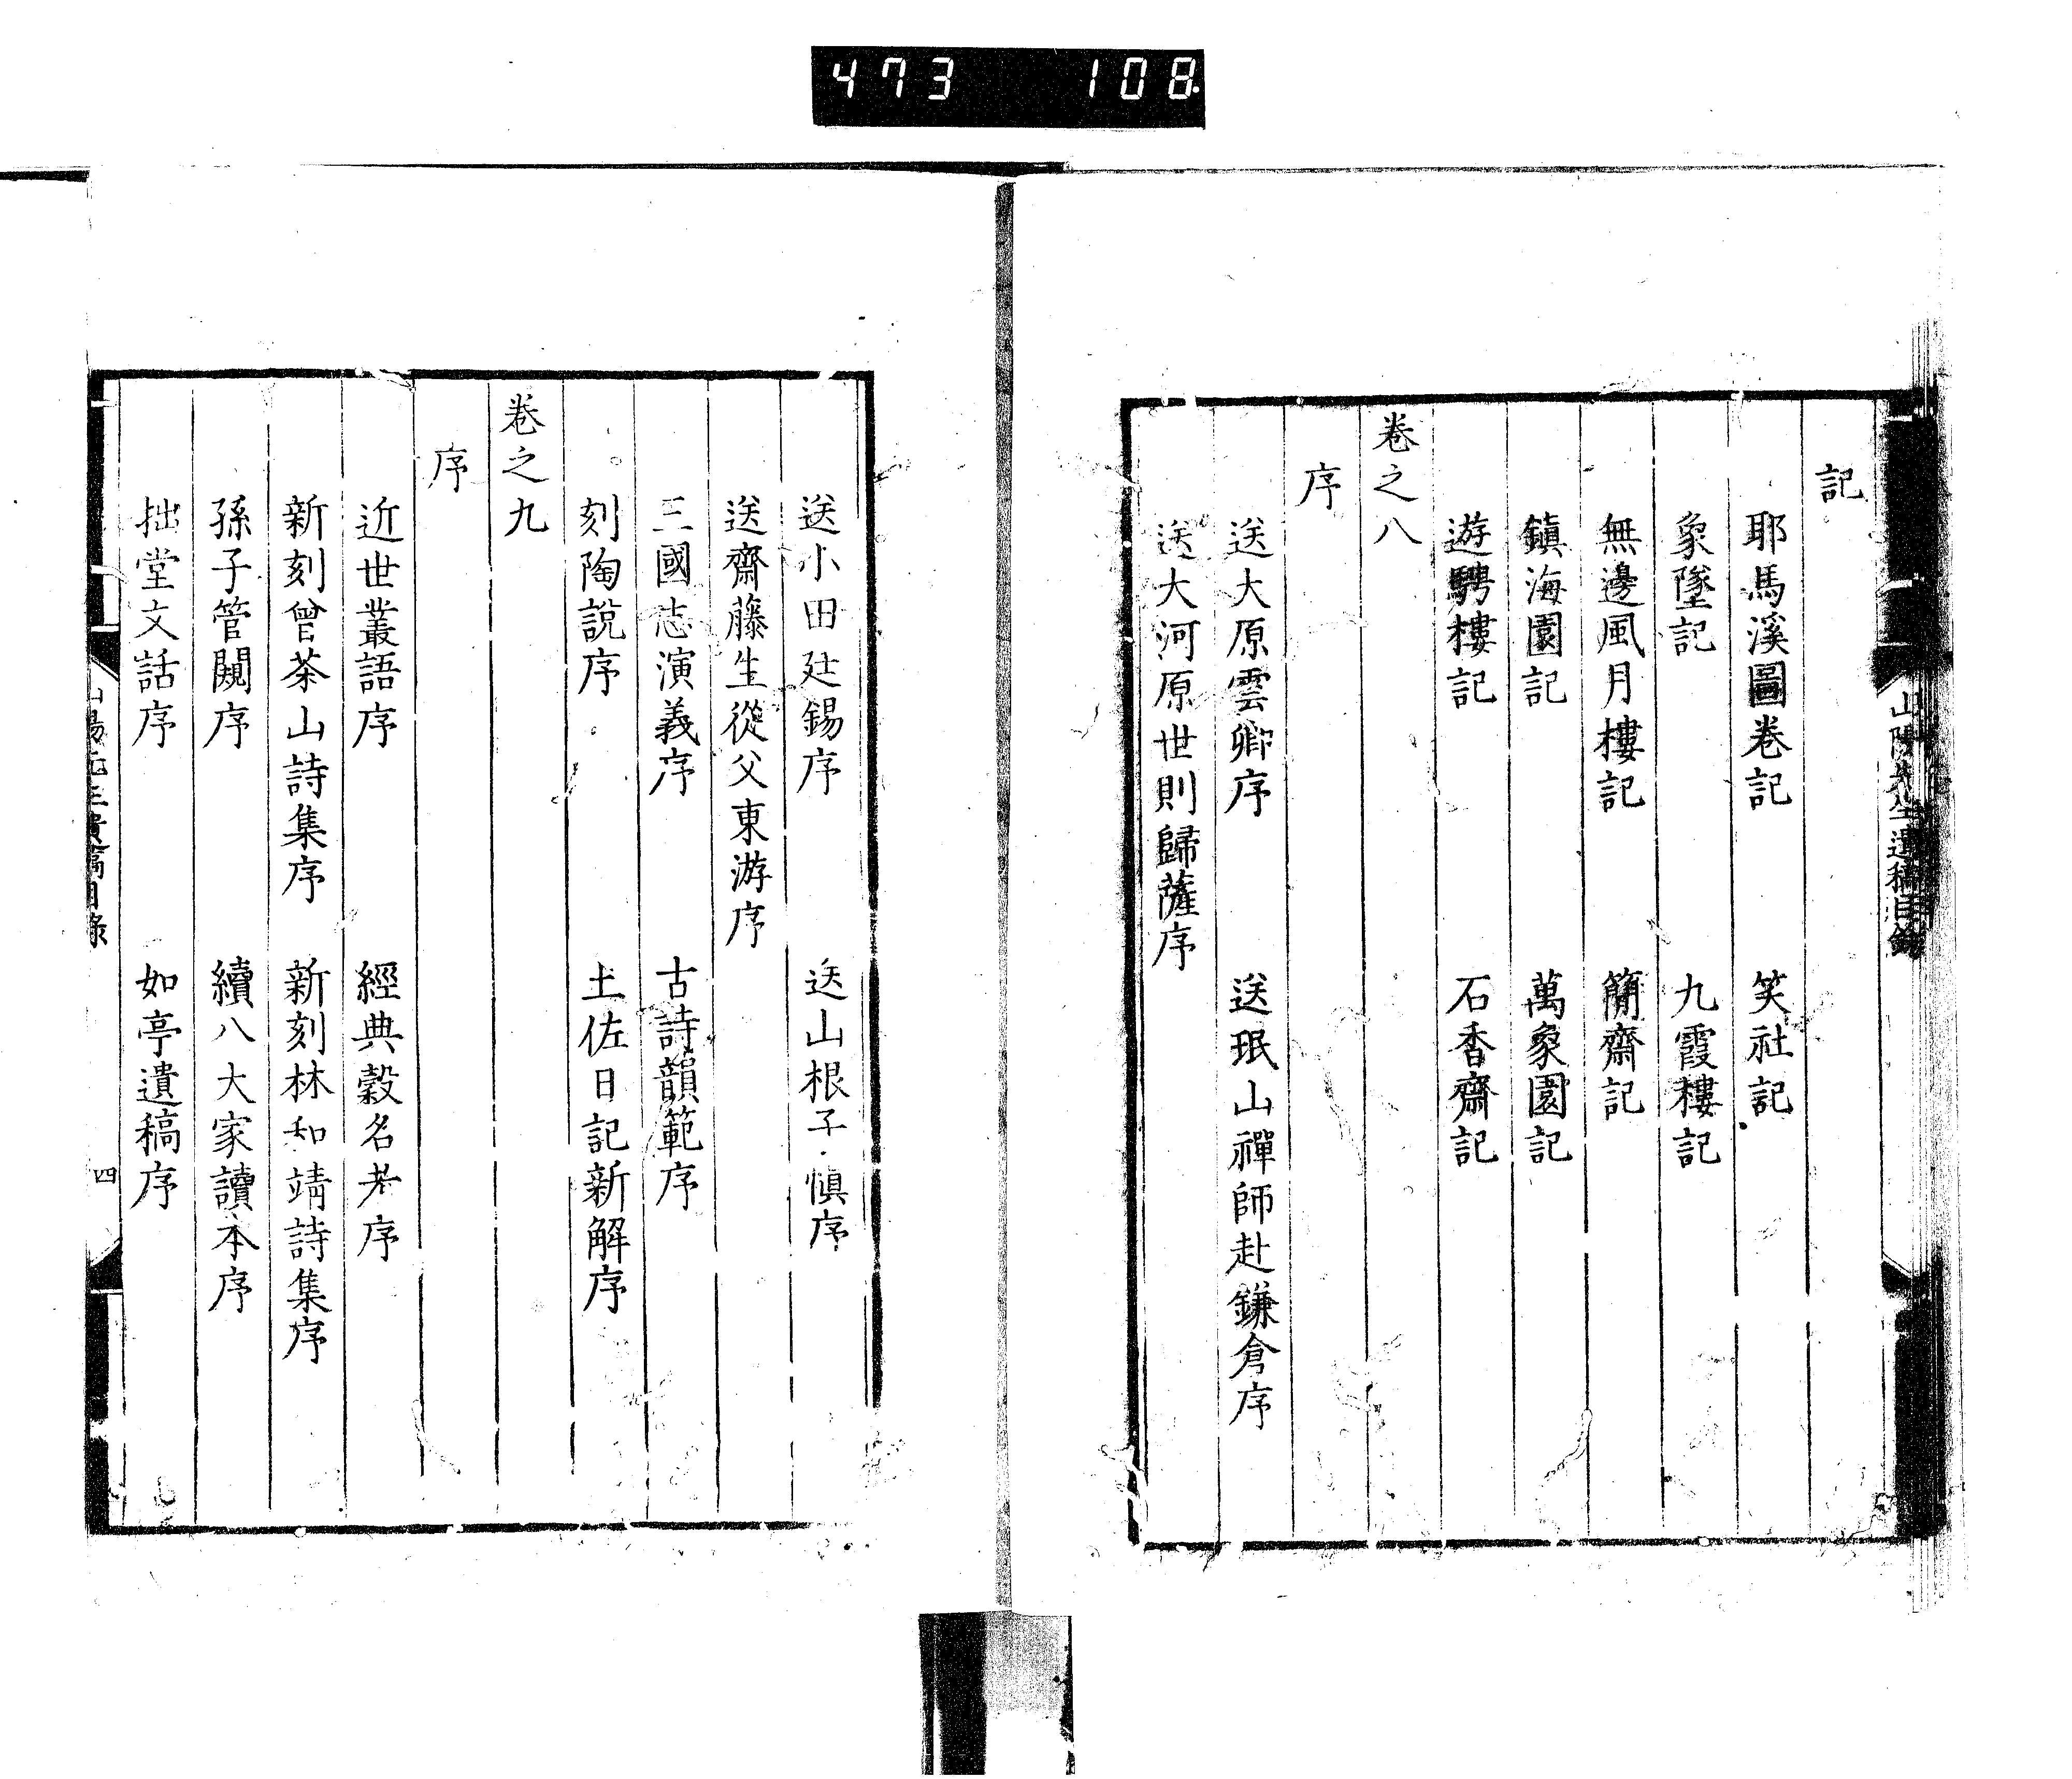 473 108
山陽先生遺稿目錄
記
耶馬溪圖卷記 笑社記
象墜記 九霞樓記
無邊風月樓記 簡齋記
鎮海園記 萬象園記
遊騁樓記 石香齋記
卷之八
序
送大原雲卿序 送珉山禪師赴鎌倉序
送大河原世則歸薩序
送小田廷錫序 送山根子慎序
送齋藤生從父東游序
三國志演義序 古詩韻範序
刻陶說序 土佐日記新解序
卷之九
序
近世叢語序 經典穀名考序
新刻曾茶山詩集序 新刻林和靖詩集序
孫子管闚序 續八大家讀本序
拙堂文話序 如亭遺稿序
山陽先生遺稿目錄 四